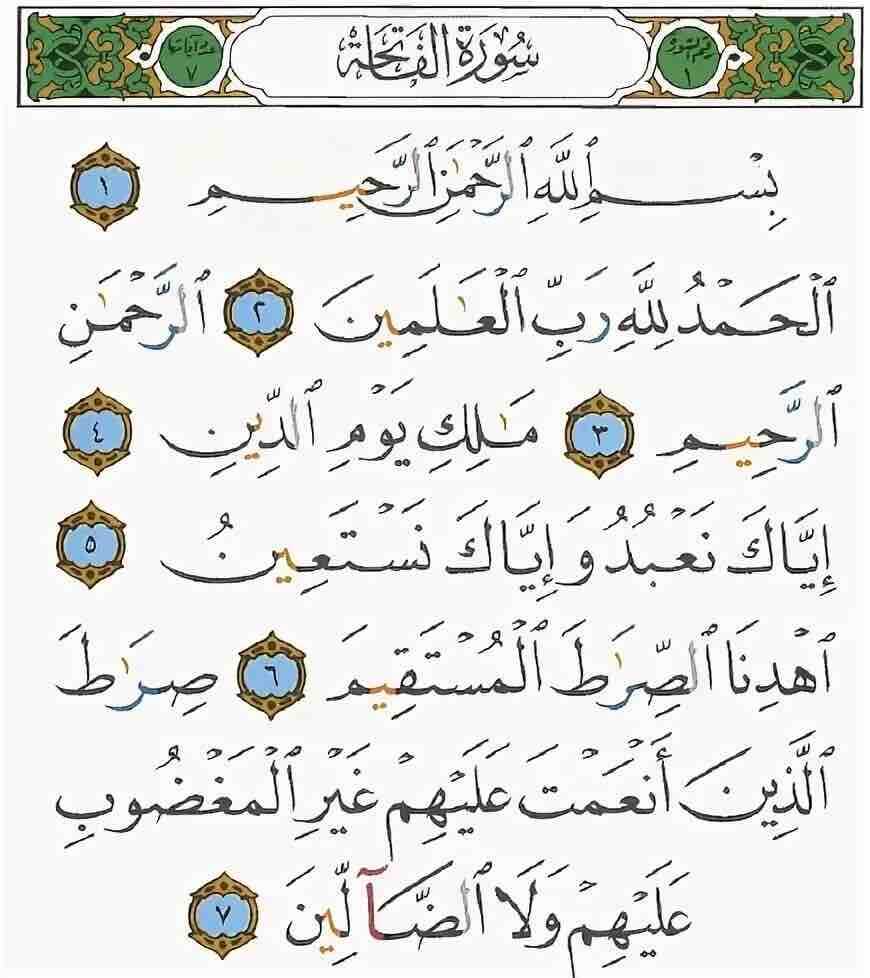 سُورَةُ الفَاتِحَةِ
بِسْمِ ٱللَّهِ ٱلرَّحْمَٰنِ ٱلرَّحِيمِ ١
ٱلْحَمْدُ لِلَّهِ رَبِّ ٱلْعَٰلَمِينَ ٢ ٱلرَّحْمَٰنِ
ٱلرَّحِيمِ ٣ مَٰلِكِ يَوْمِ ٱلدِّينِ ٤
إِيَّاكَ نَعْبُدُ وَإِيَّاكَ نَسْتَعِينُ ٥
ٱهْدِنَا ٱلصِّرَٰطَ ٱلْمُسْتَقِيمَ ٦ صِرَٰطَ
ٱلَّذِينَ أَنْعَمْتَ عَلَيْهِمْ غَيْرِ ٱلْمَغْضُوبِ
عَلَيْهِمْ وَلَا ٱلضَّآلِّينَ ٧